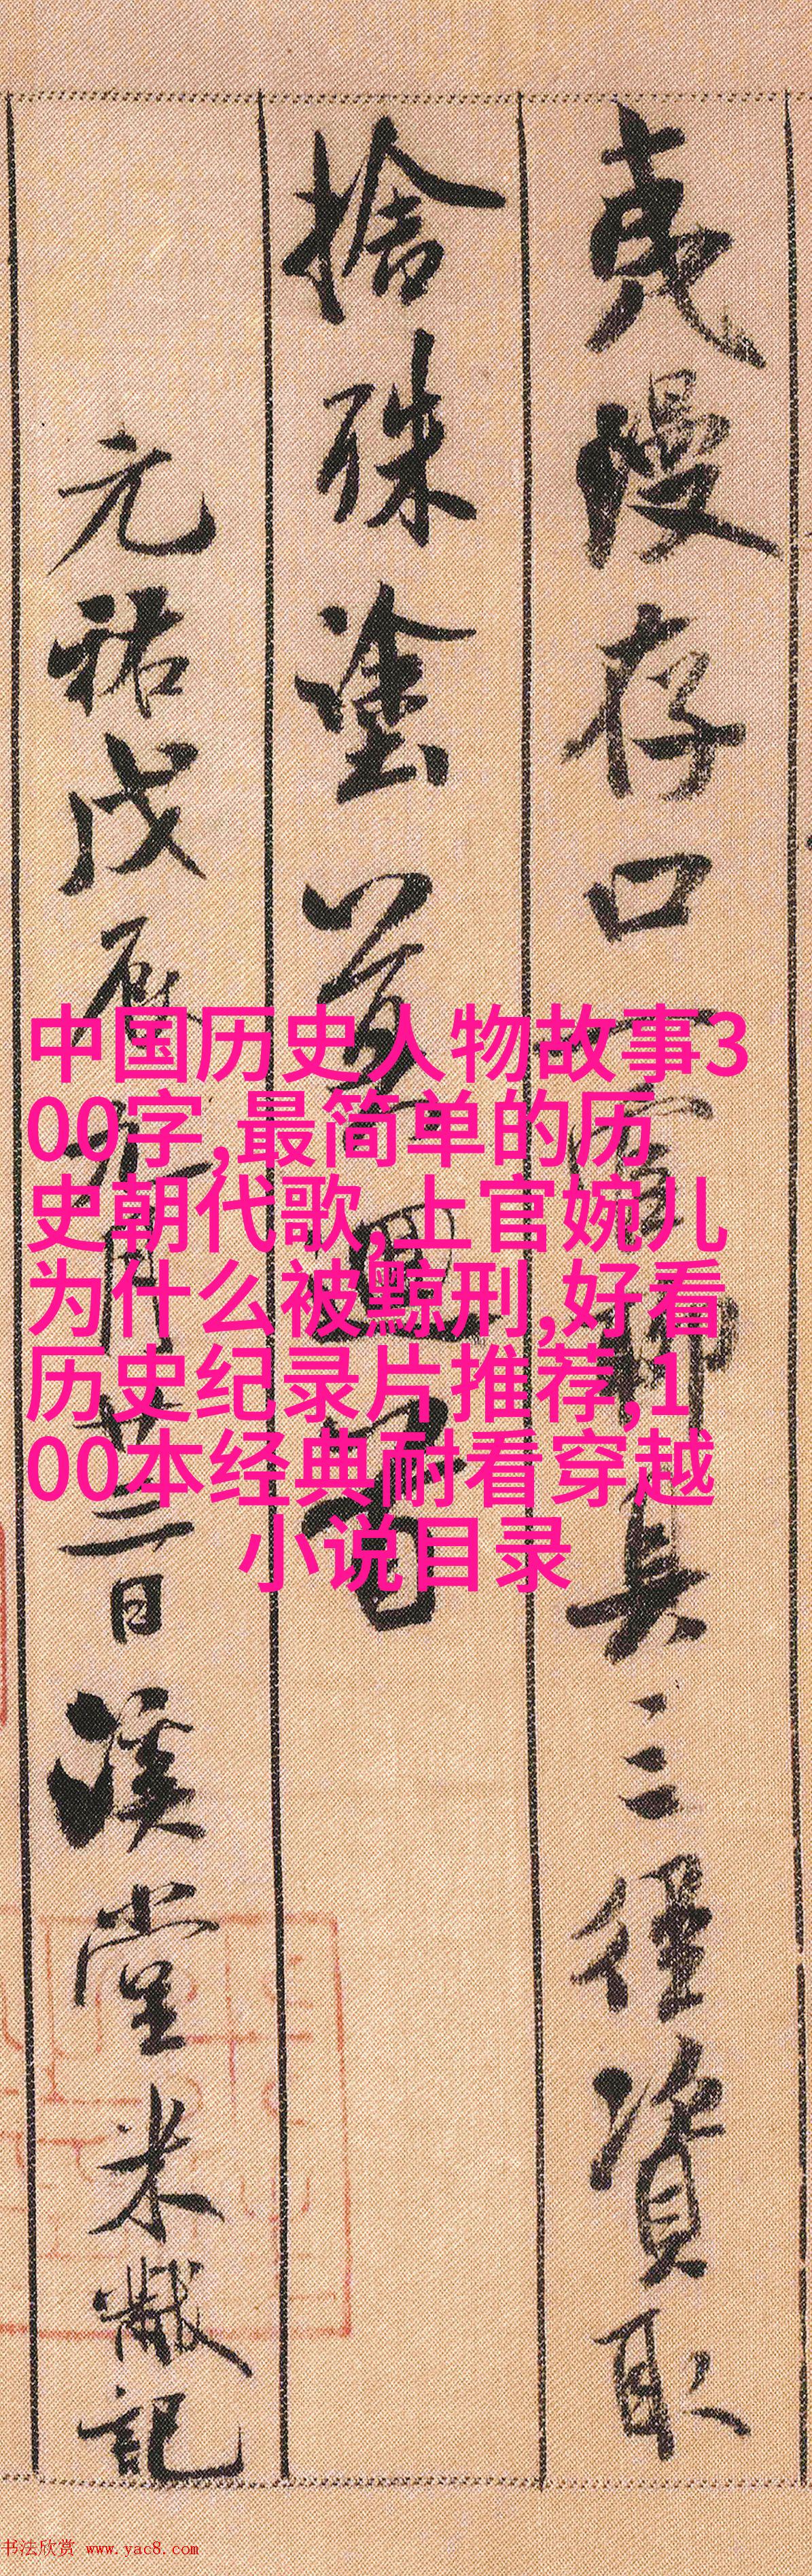 夷漫存口一官聊具三徑資取
捨殊塗莫迴首
元祐戊辰九月廿三日溪堂米黻記
中国历史人物故事3
00字,最简单的历
史朝代歌,上官婉儿
为什么被黥刑,好看
历史纪录片推荐,1
00本经典耐看穿越
小说目录
书法欣赏 www.yac8.com